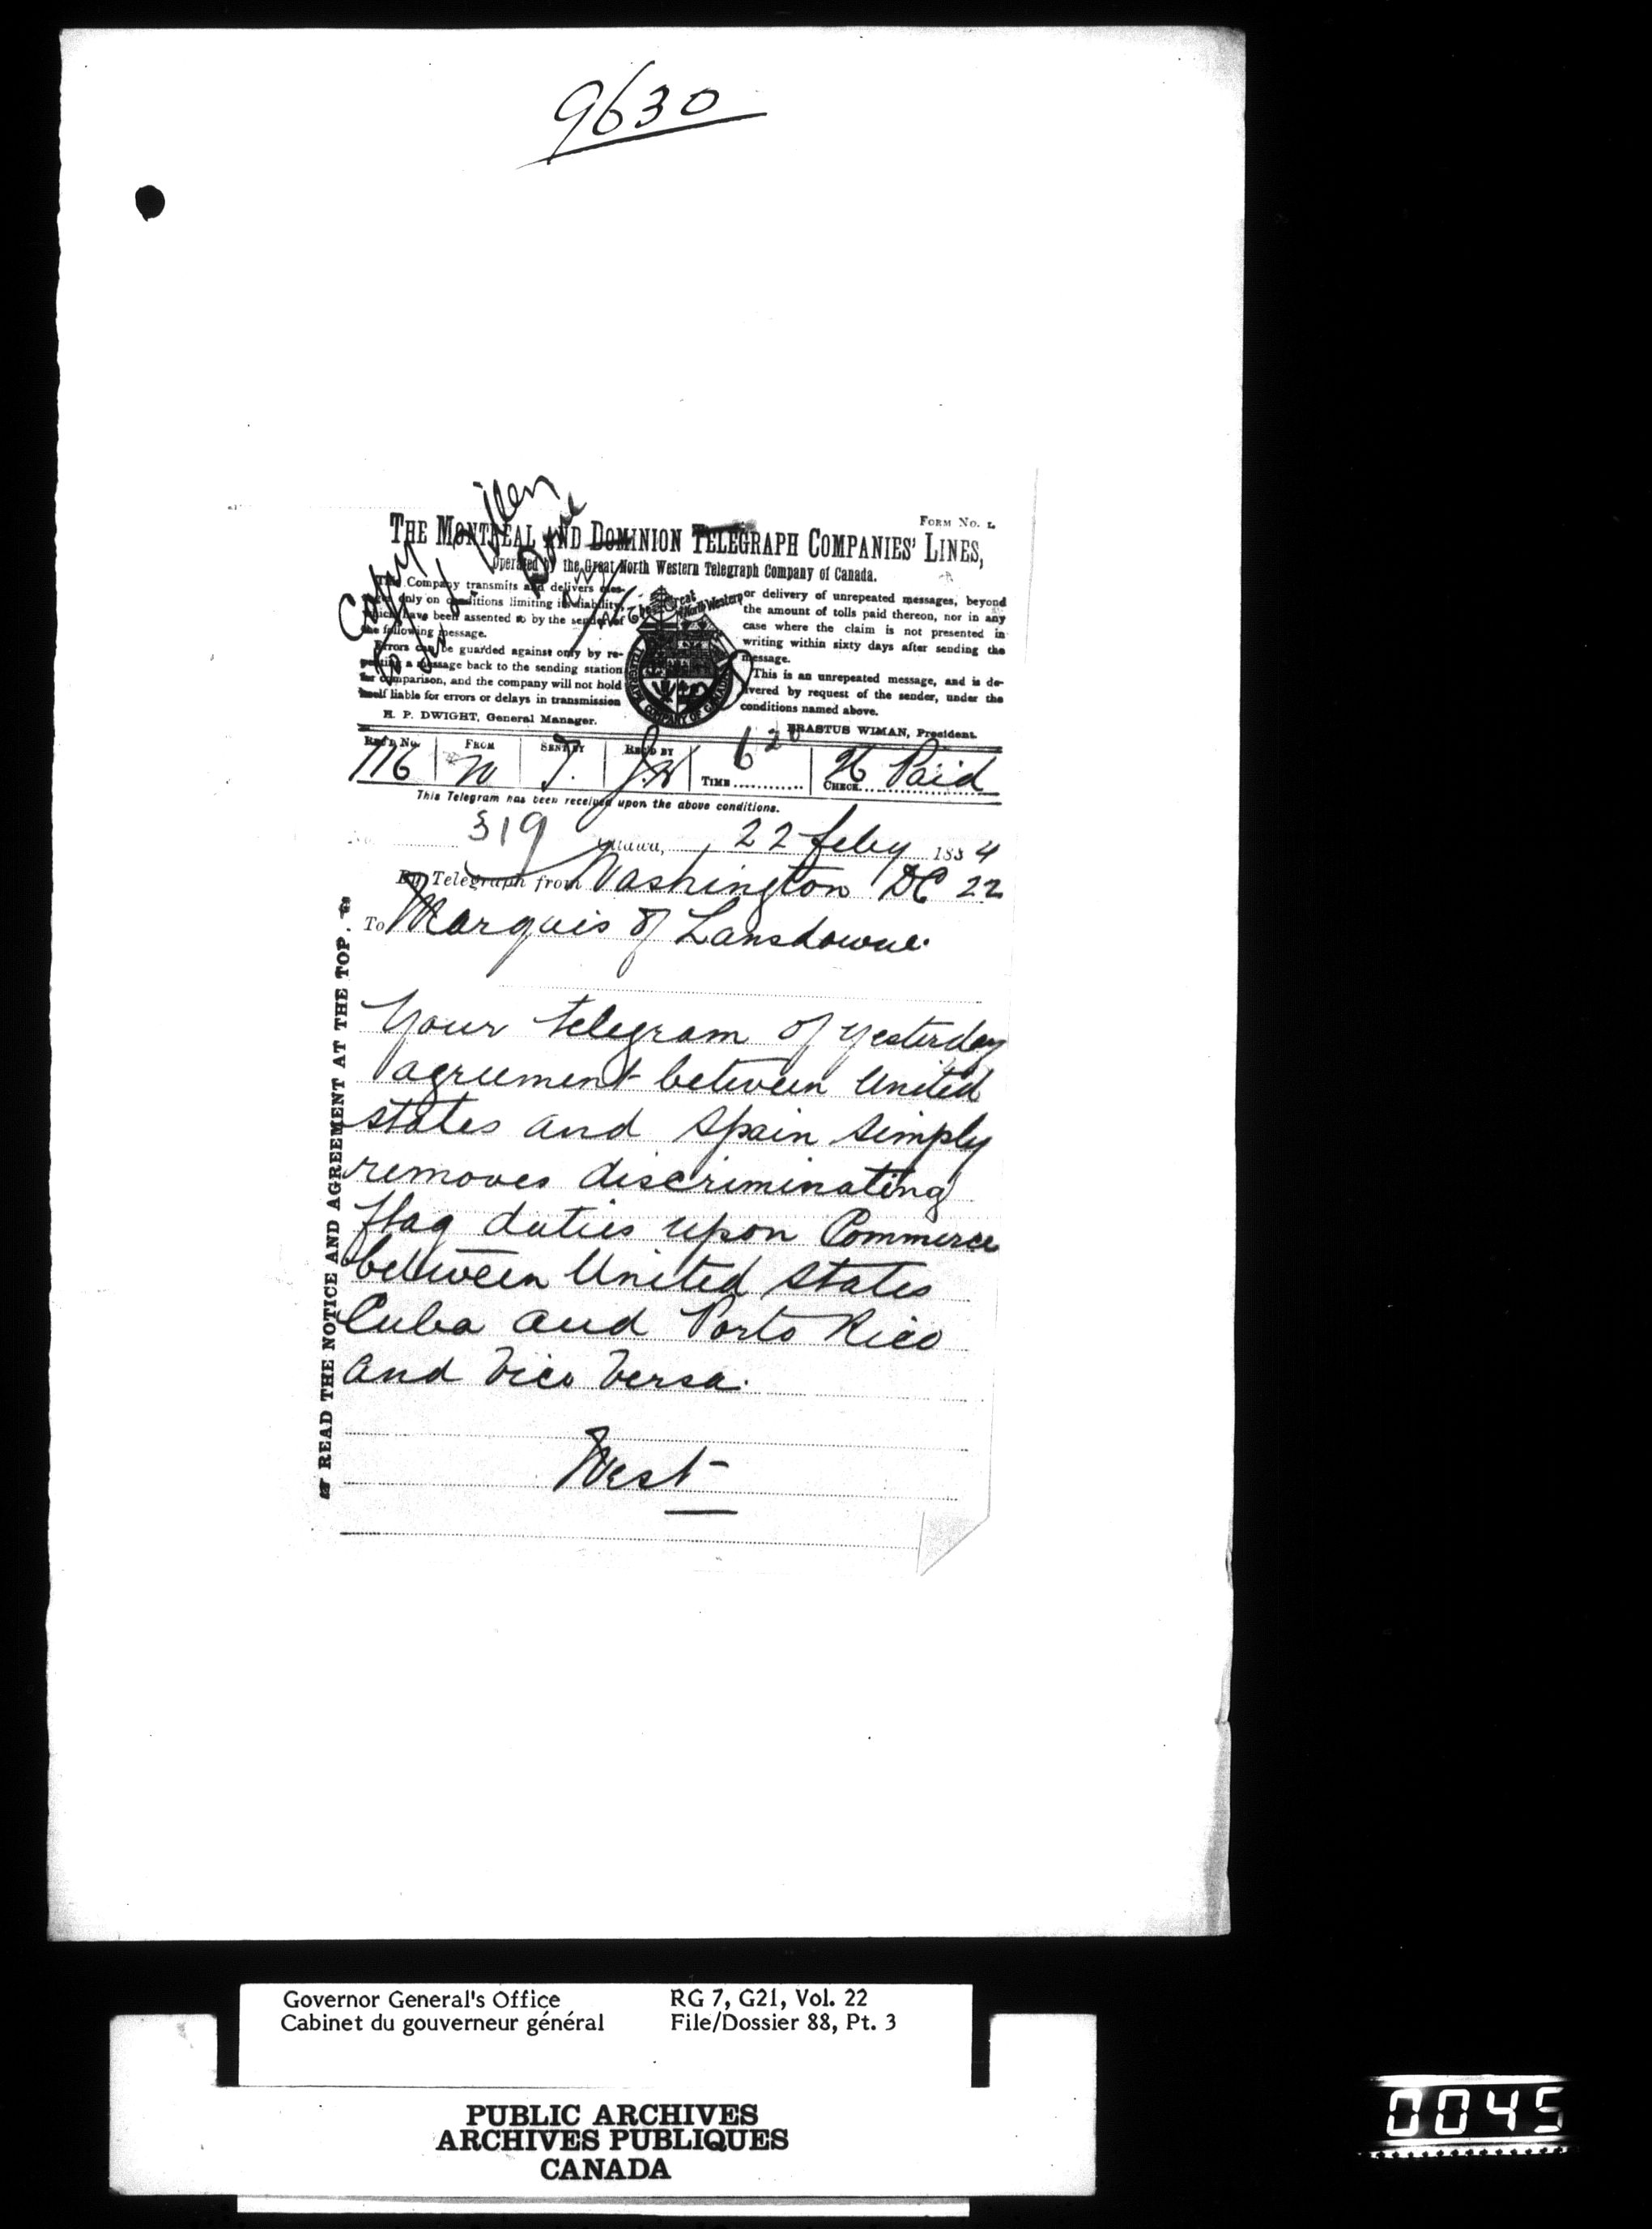 9630
Copy
Done
FORM No. 1.
THE MONTREAL AND DOMINION TELEGRAPH COMPANIES' LINES,
Operated by the Great North Western Telegraph Company of Canada.
This Company transmits and delivers mes-
sages only on conditions limiting its liability,
which have been assented to by the sender of
the following message.
Errors can be guarded against only by re-
peating a message back to the sending station
for comparison, and the company will not hold
itself liable for errors or delays in transmission
H. P. DWIGHT, General Manager.
The Great North Western
TELEGRAPH COMPANY OF CANADA
or delivery of unrepeated messages, beyond
the amount of tolls paid thereon, nor in any
case where the claim is not presented in
writing within sixty days after sending the
message.
This is an unrepeated message, and is de-
livered by request of the sender, under the
conditions named above.
ERASTUS WIMAN, President.
Rec'd No. FROM SENT BY REC'D BY TIME CHECK
116 T. 620 26 Paid
This Telegram has been received upon the above conditions.
319 Ottawa, 22 feby 1884
By Telegraph from Washington DC 22
To Marquis of Lansdowne.
Your telegram of yesterday
agreement between United
states and Spain simply
removes discriminating
flag duties upon Commerce
between United States
Cuba and Porto Rico
and vice versa.
West
READ THE NOTICE AND AGREEMENT AT THE TOP.
Governor General's Office RG 7, G21, Vol. 22
Cabinet du gouverneur général File/Dossier 88, Pt. 3
PUBLIC ARCHIVES
ARCHIVES PUBLIQUES
CANADA
0045